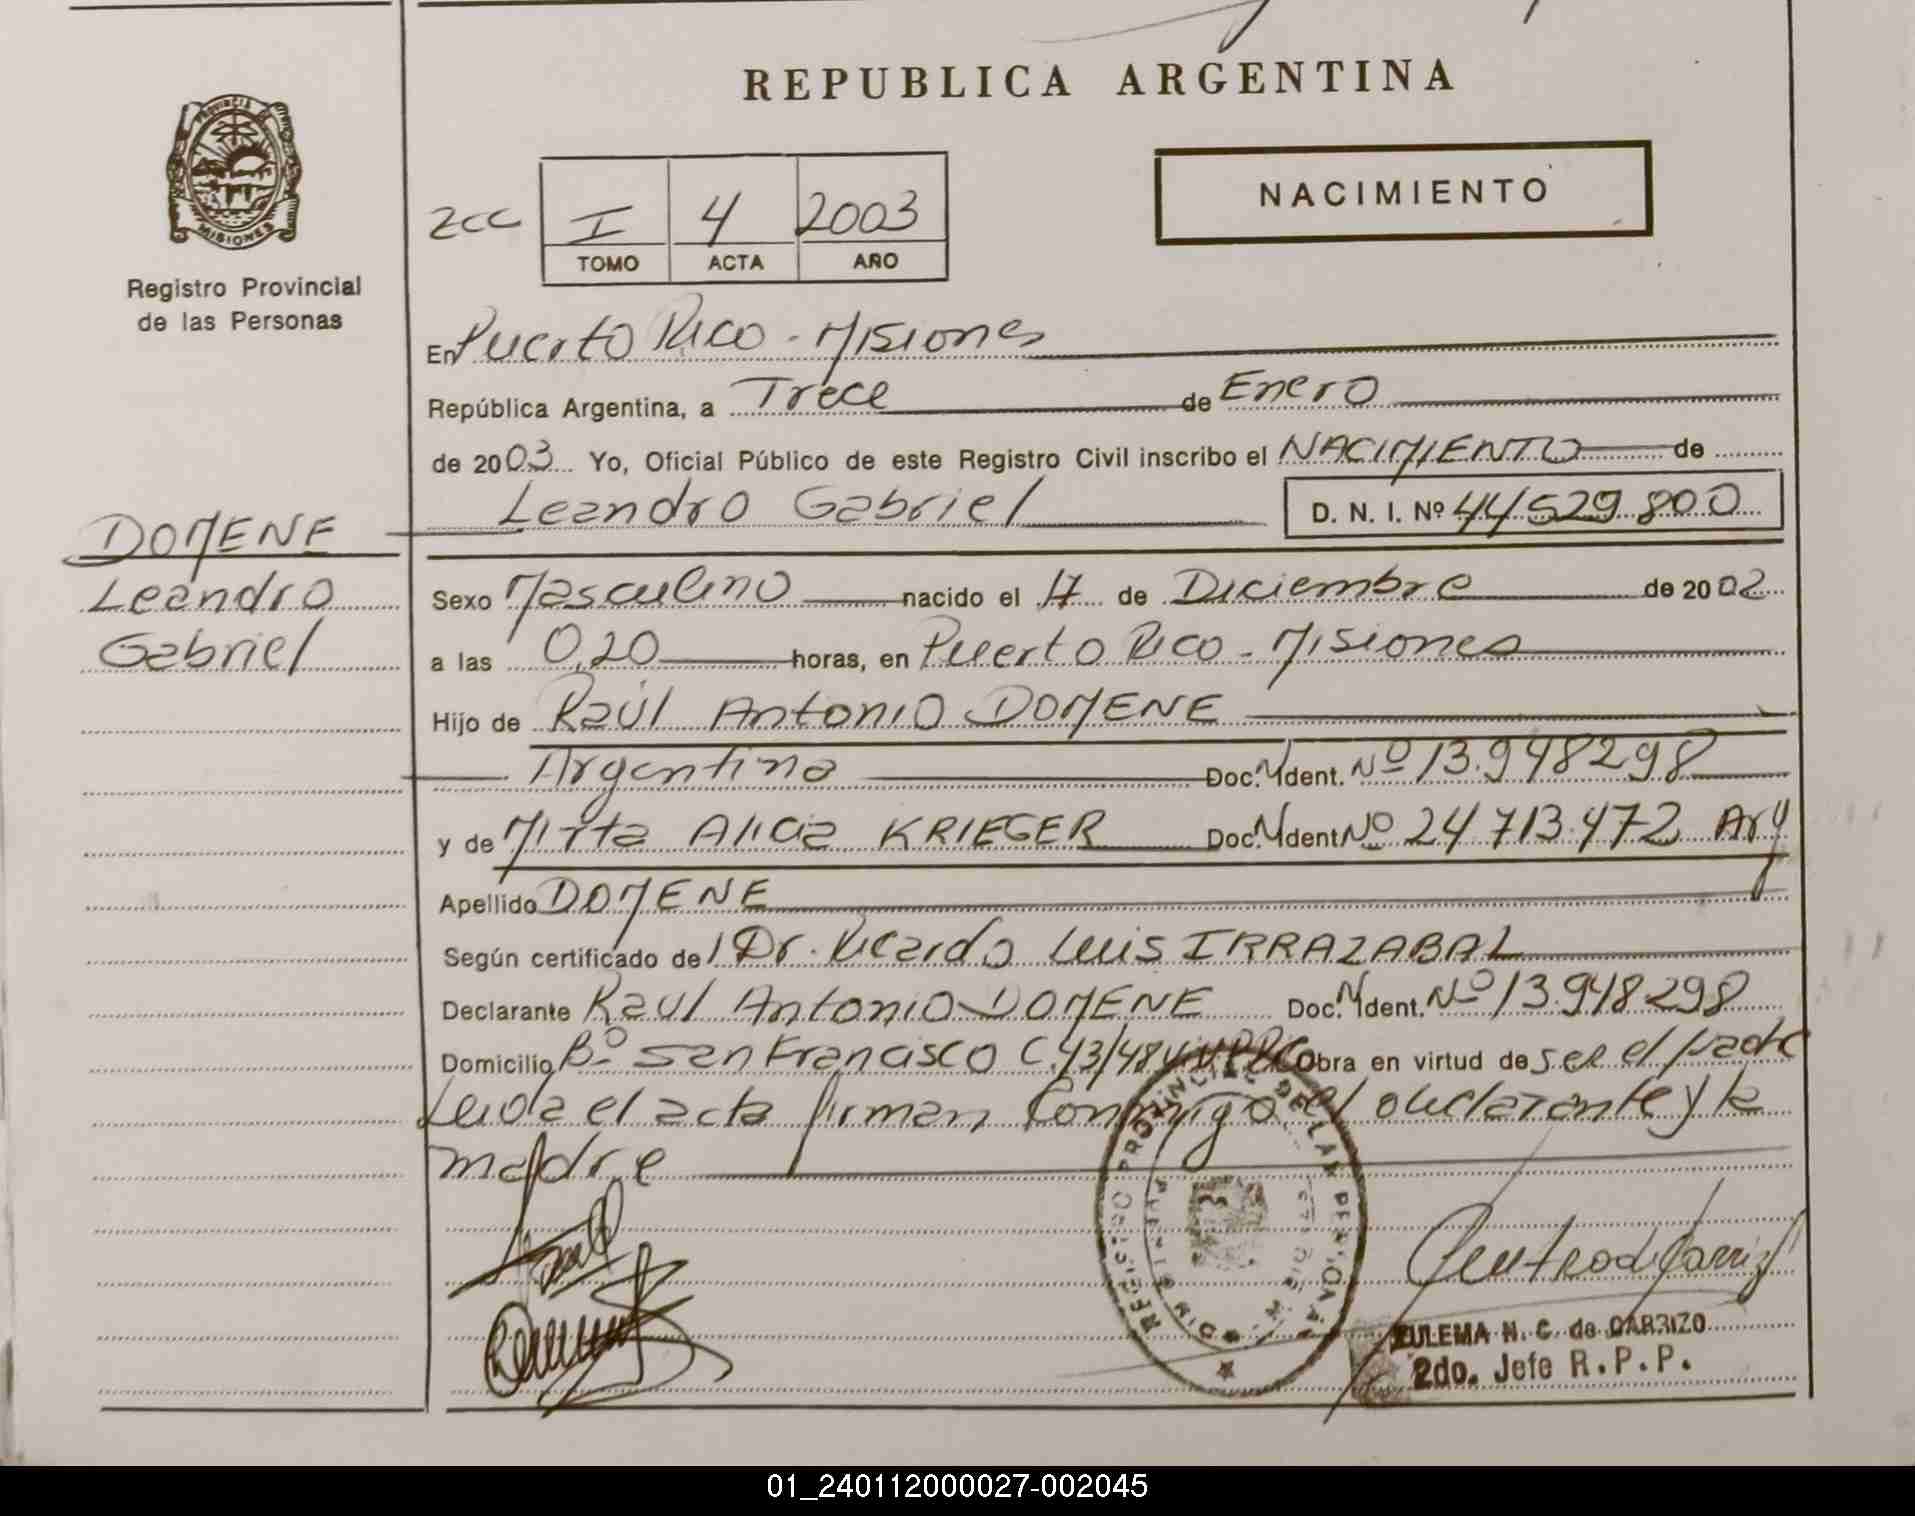 REPUBLICA ARGENTINA
PROVINCIA DE
MISIONES
Registro Provincial
de las Personas
NACIMIENTO
zcc I 4 2003
TOMO ACTA AÑO
En Puerto Rico - Misiones
República Argentina, a Trece de Enero
de 2003 Yo, Oficial Público de este Registro Civil inscribo el NACIMIENTO de
Leandro Gabriel D. N. I. Nº 44 529 800
DOMENE
Leandro
Gabriel
Sexo Masculino nacido el 17 de Diciembre de 2002
a las 0,20 horas, en Puerto Rico - Misiones
Hijo de Raúl Antonio DOMENE
Argentina Doc. Ident. Nº 13.948298
y de Mirta Alicia KRIEGER Doc. Ident Nº 24 713.472 Arg
Apellido DOMENE
Según certificado del Dr. Ricardo Luis IRRAZABAL
Declarante Raul Antonio DOMENE Doc. Ident. Nº 13.948298
Domicilio Bº San Francisco C. 43/48 Obra en virtud de ser el padre
Leida el acta firman conmigo el declarante y la
madre
REGISTRO PROVINCIAL DE LAS PERSONAS
ZULEMA N. C. de CARRIZO
2do. Jefe R.P.P.
01_240112000027-002045